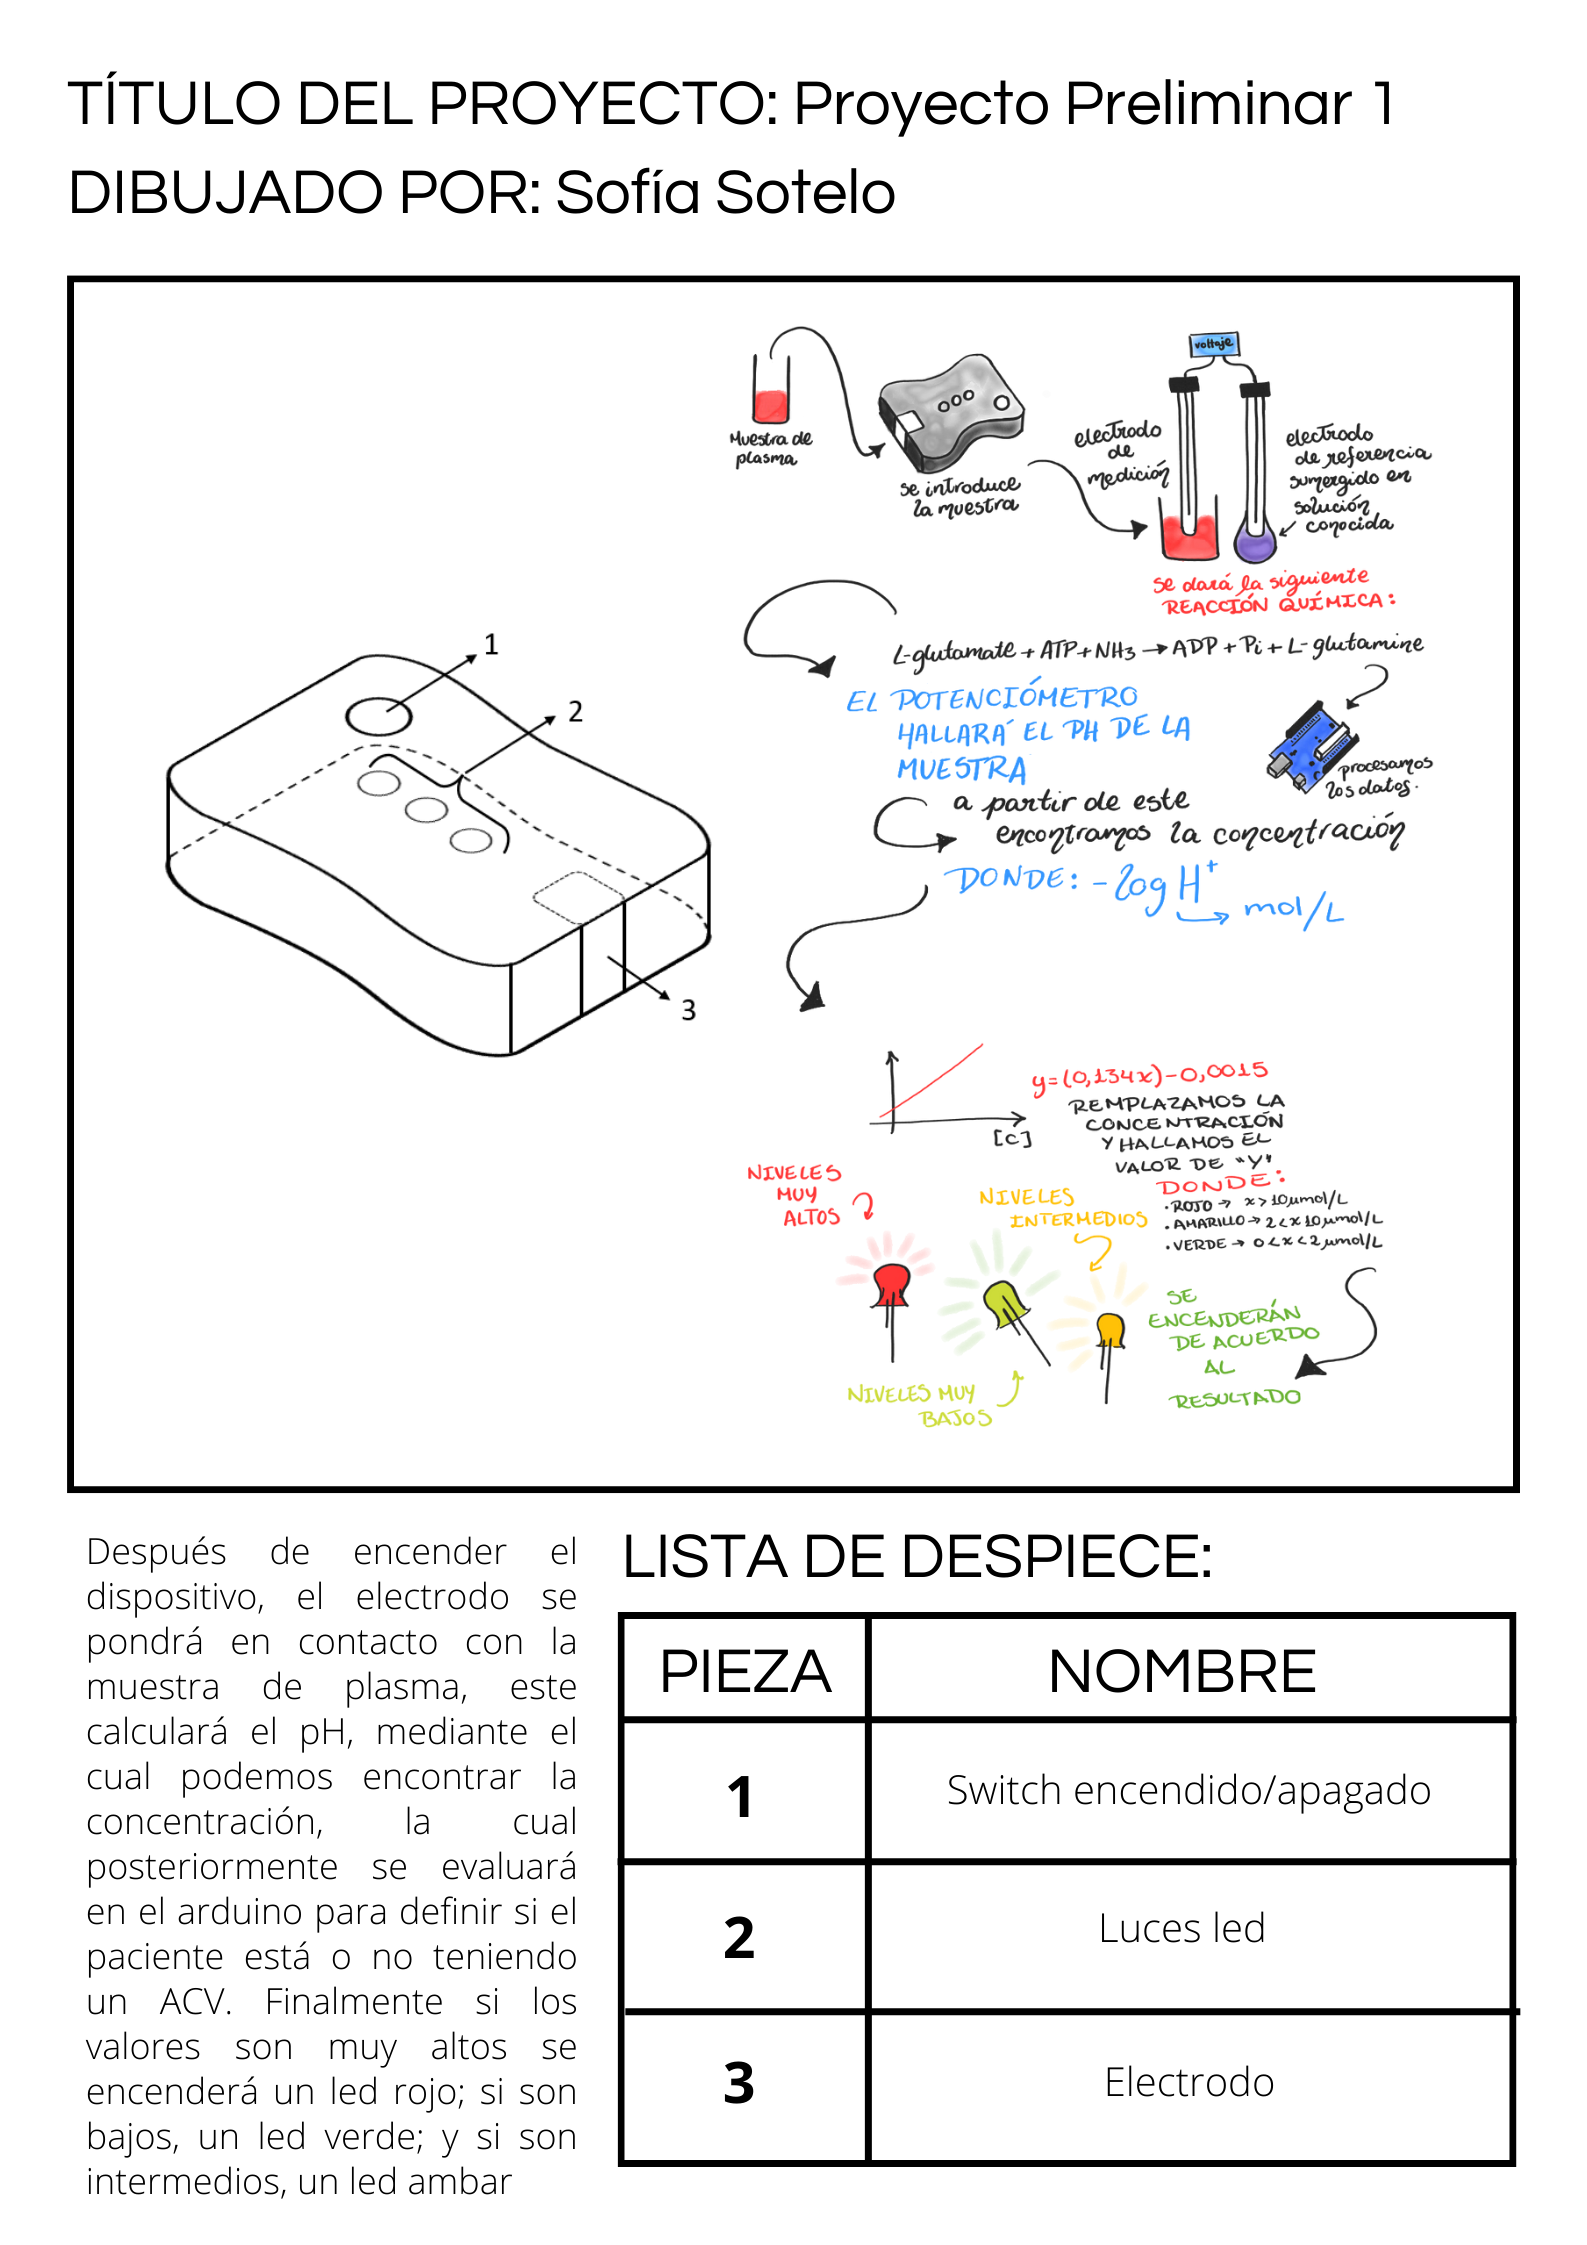 TÍTULO DEL PROYECTO: Proyecto Preliminar 1
DIBUJADO POR: Sofía Sotelo
1
2
3
Muestra de
plasma
se introduce
la muestra
voltaje
electrodo
de
medición
electrodo
de referencia
sumergido en
solución
conocida
se dará la siguiente
REACCIÓN QUÍMICA:
L-glutamate + ATP + NH3 → ADP + Pi + L-glutamine
EL POTENCIÓMETRO
HALLARÁ EL PH DE LA
MUESTRA
procesamos
los datos.
a partir de este
encontramos la concentración
DONDE: -log H+
mol/L
[c]
y=(0,134x)-0,0015
REMPLAZAMOS LA
CONCENTRACIÓN
Y HALLAMOS EL
VALOR DE "Y"
DONDE:
• ROJO → x > 10 µmol/L
• AMARILLO → 2 < x 10 µmol/L
• VERDE → 0 < x < 2 µmol/L
NIVELES
MUY
ALTOS
NIVELES
INTERMEDIOS
NIVELES MUY
BAJOS
SE
ENCENDERÁN
DE ACUERDO
AL
RESULTADO
Después de encender el
dispositivo, el electrodo se
pondrá en contacto con la
muestra de plasma, este
calculará el pH, mediante el
cual podemos encontrar la
concentración, la cual
posteriormente se evaluará
en el arduino para definir si el
paciente está o no teniendo
un ACV. Finalmente si los
valores son muy altos se
encenderá un led rojo; si son
bajos, un led verde; y si son
intermedios, un led ambar
LISTA DE DESPIECE:
PIEZA NOMBRE
1 Switch encendido/apagado
2 Luces led
3 Electrodo